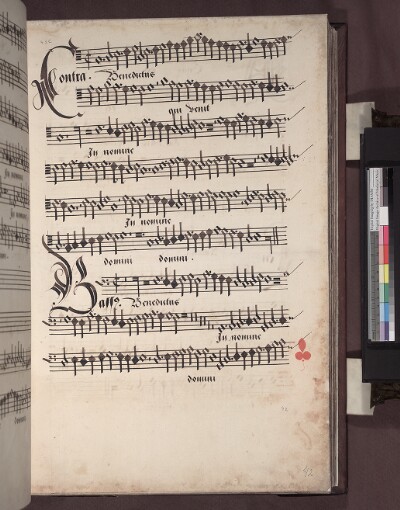 Contra. Benedictus
qui venit
In nomine
In nomine
domini domini.
Bassus Benedictus
In nomine
domini